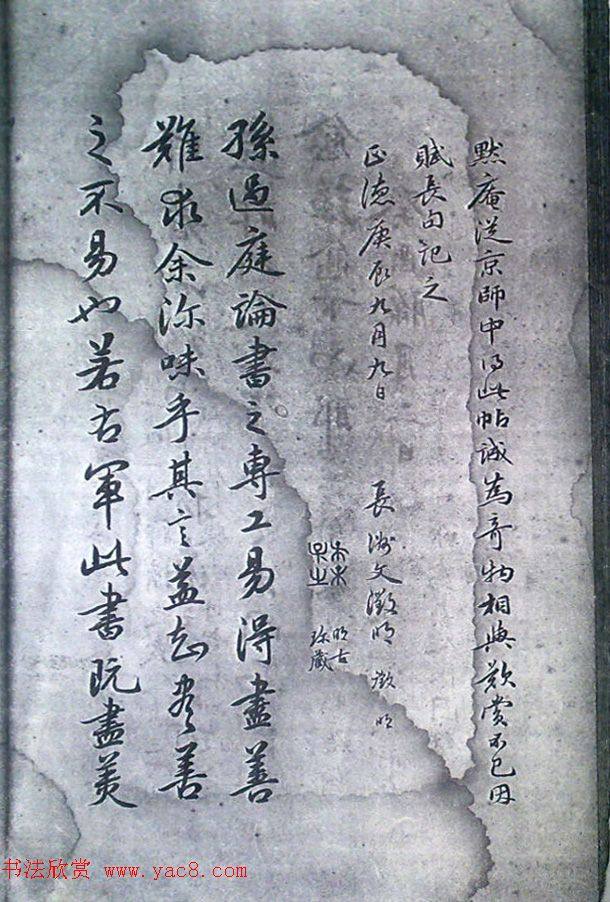 默庵從京師中得此帖誠為奇物相與歎賞不已因
賦長句記之
正德庚辰九月九日 長洲文徵明 徵明
明古
珍藏
孫過庭論書之專工易得盡善
難求余深味乎其言益知盡善
之不易也若右軍此書既盡美
书法欣赏 www.yac8.com